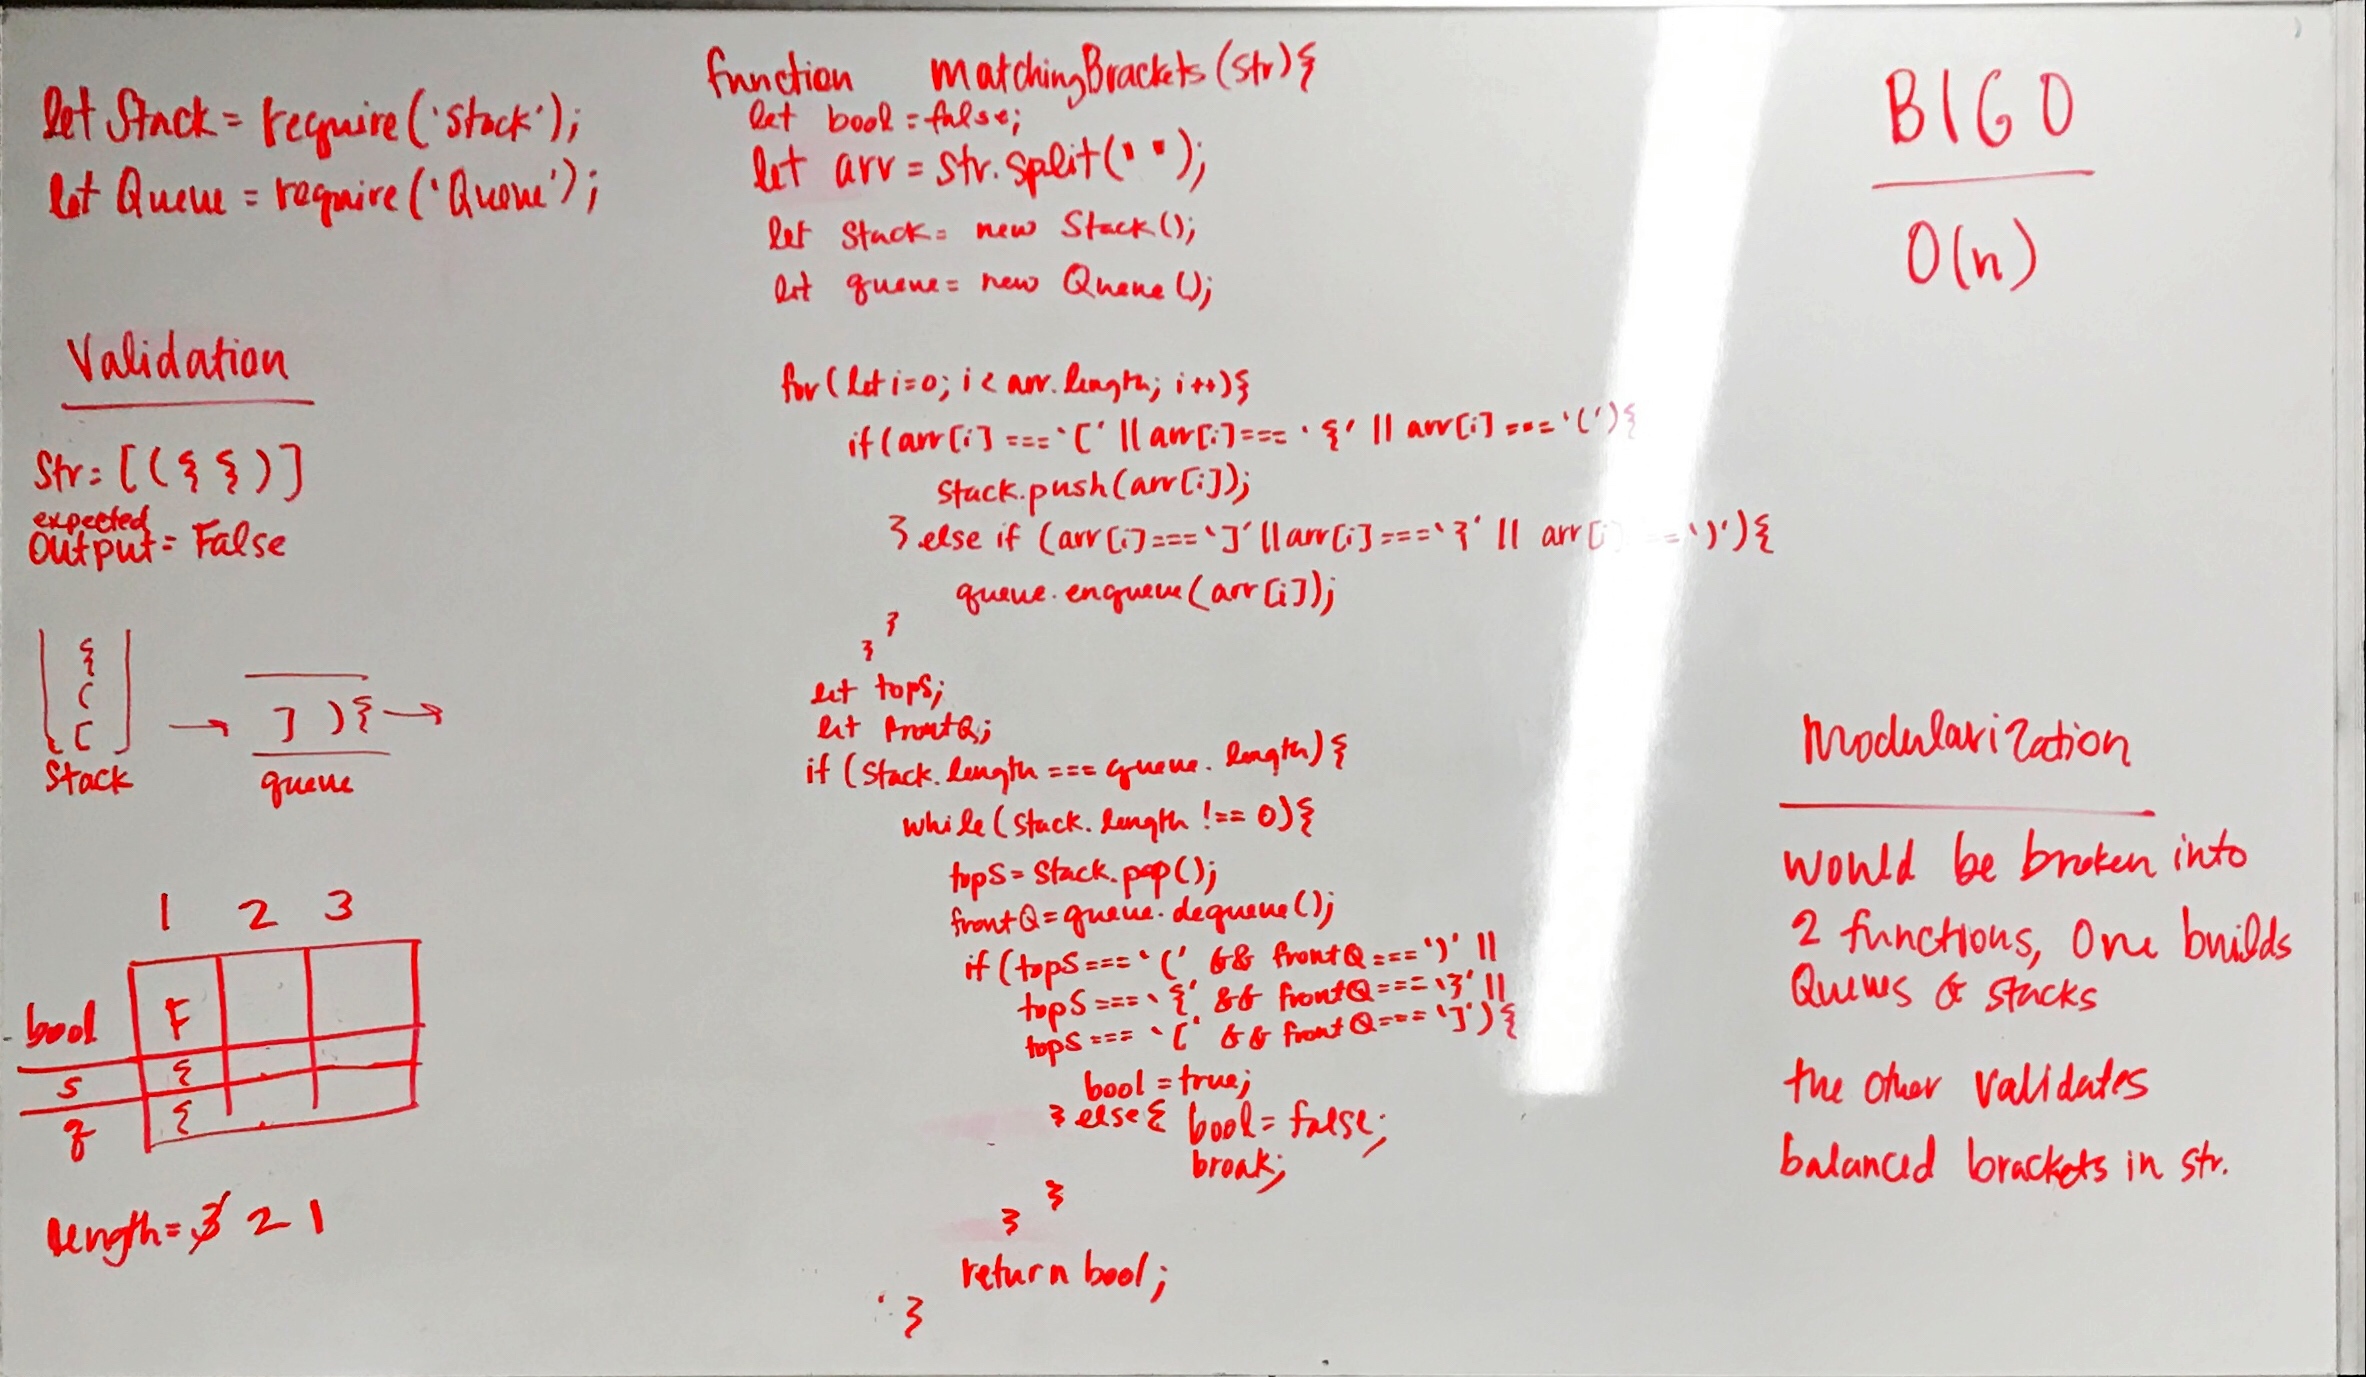 let Stack = require('stack');
let Queue = require('Queue');
Validation
Str = [({{)]
expected
output = False
{
(
[
Stack
] ){
queue
1 2 3
bool F
s {
q {
length = 3 2 1
function matchingBrackets(str){
let bool = false;
let arr = str.split('');
let stack = new Stack();
let queue = new Queue();
for(let i=0; i < arr.length; i++){
if(arr[i] === '[' || arr[i] === '{' || arr[i] === '('){
stack.push(arr[i]);
} else if (arr[i] === ']' || arr[i] === '}' || arr[i] === ')'){
queue.enqueue(arr[i]);
}
}
let topS;
let frontQ;
if (stack.length === queue.length){
while(stack.length !== 0){
topS = stack.pop();
frontQ = queue.dequeue();
if(topS === '(' && frontQ === ')' ||
topS === '{' && frontQ === '}' ||
topS === '[' && frontQ === ']'){
bool = true;
} else { bool = false;
break;
}
}
return bool;
}
BIG O
O(n)
Modularization
would be broken into
2 functions, One builds
Queues & stacks
the other validates
balanced brackets in str.